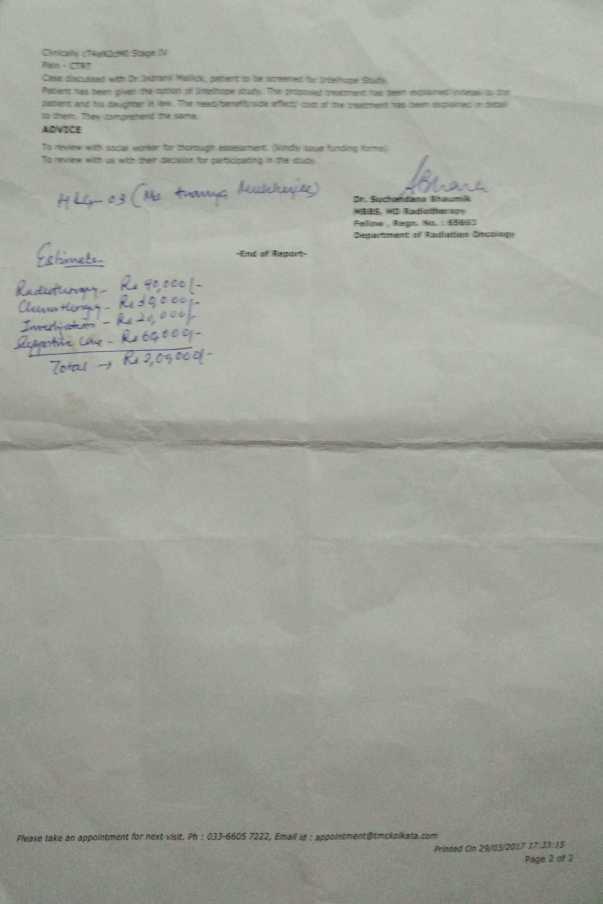 Clinically cT4aN2cM0 Stage IV
Plan - CTRT
Case discussed with Dr Indranil Mallick, patient to be screened for Intelhope Study.
Patient has been given the option of Intelhope study. The proposed treatment has been explained indetail to the
patient and his daughter in law. The need/benefit/side effect/ cost of the treatment has been explained in detail
to them. They comprehend the same.
ADVICE
To review with social worker for thorough assessment. (kindly issue funding forms)
To review with us with their decision for participating in the study.
03 (Ms Mukherjee)
Dr. Suchandana Bhaumik
MBBS, MD Radiotherapy
Fellow , Regn. No. :
Department of Radiation Oncology
-End of Report-
Estimate
Radiotherapy - Rs 90,000/-
Chemotherapy - Rs 30,000/-
Investigation - Rs 20,000/-
Supportive Care - Rs 60,000/-
Total → Rs 2,00,000/-
Please take an appointment for next visit. Ph : 033-6605 7222, Email id : appointment@tmckolkata.com
Printed On 29/03/2017 17:33:15
Page 2 of 2